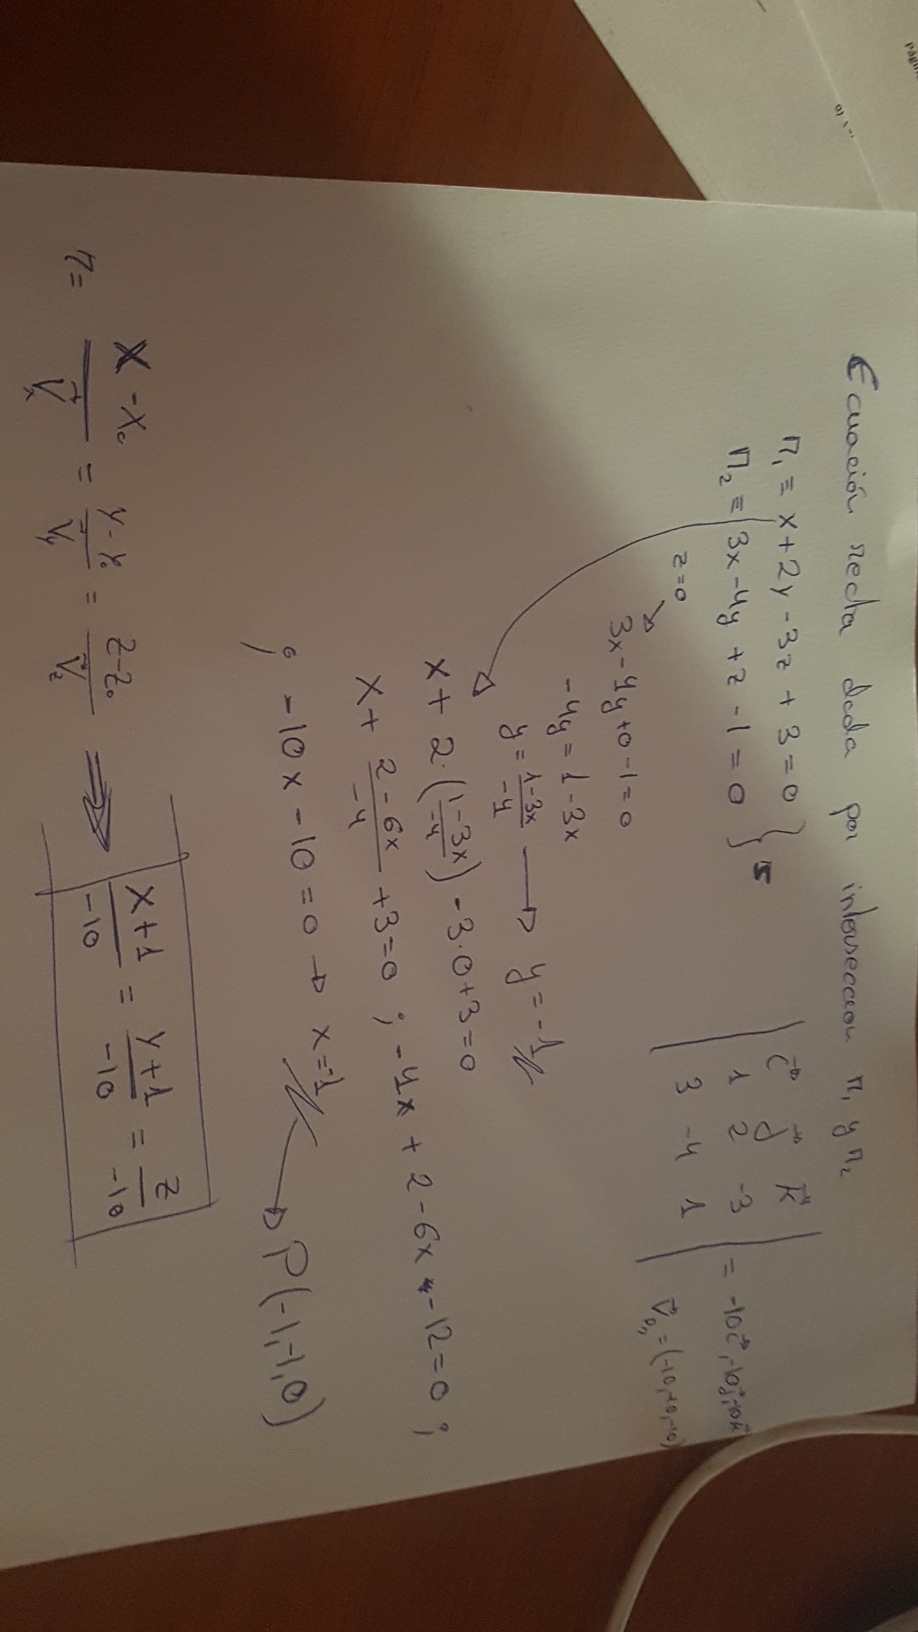 Ecuación recta dada por intersección π₁ y π₂
π₁ ≡ x + 2y - 3z + 3 = 0
π₂ ≡ 3x - 4y + z - 1 = 0 }
| i⃗ j⃗ k⃗ |
| 1 2 -3 |
| 3 -4 1 | = -10i⃗, -10j⃗, -10k⃗
z=0
3x - 4y + 0 - 1 = 0
-4y = 1 - 3x
y = (1-3x)/-4 → y = -1
x + 2·((1-3x)/-4) - 3·0 + 3 = 0
x + (2-6x)/-4 + 3 = 0 ; -4x + 2 - 6x - 12 = 0 ;
; -10x - 10 = 0 → x = -1 → P(-1,-1,0)
r = (x-x₀)/v⃗ₓ = (y-y₀)/v⃗y = (z-z₀)/v⃗z ⟹ (x+1)/-10 = (y+1)/-10 = z/-10